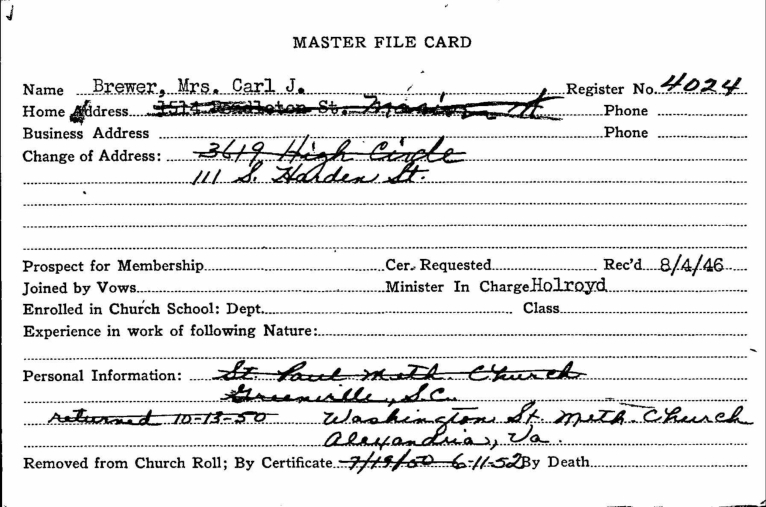 MASTER FILE CARD
Name Brewer, Mrs. Carl J. Register No. 4024
Home Address 1514 Pendleton St. Phone
Business Address Phone
Change of Address: 3619 High Circle
111 S. Harden St.
Prospect for Membership Cer. Requested Rec'd 8/4/46
Joined by Vows Minister In Charge Holroyd
Enrolled in Church School: Dept. Class
Experience in work of following Nature:
Personal Information: St. Paul Meth. Church
Greenville, S.C.
returned 10-13-50 Washington St. Meth. Church
Alexandria, Va.
Removed from Church Roll; By Certificate 7/19/50 6-11-52 By Death